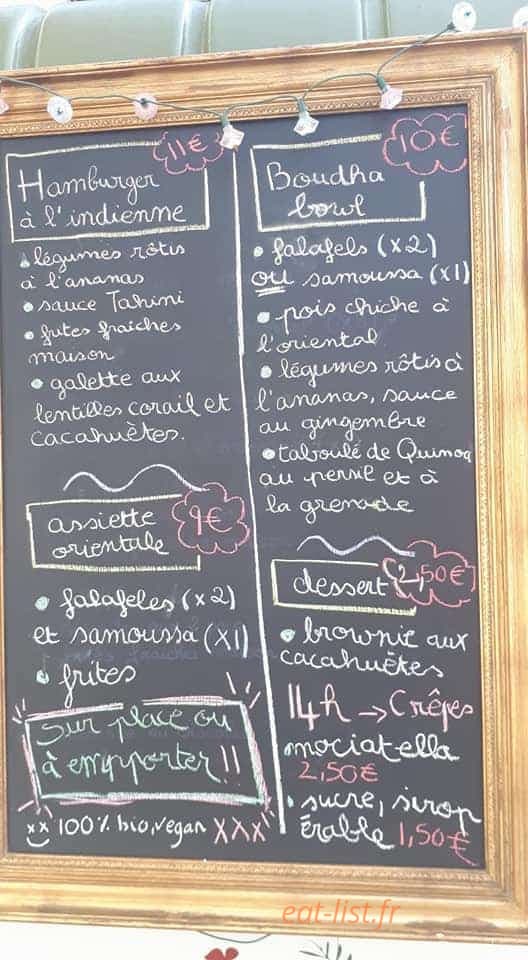 11€
Hamburger
à l'indienne
• légumes rôtis
à l'ananas
• sauce Tahini
• frites fraîches
maison
• galette aux
lentilles corail et
cacahuètes.
assiette
orientale
9€
• falafeles (x2)
et samoussa (x1)
• frites
Sur place ou
à emporter!!
100% bio, vegan XXX
10€
Boudha
bowl
• falafels (x2)
OU samoussa (x1)
• pois chiche à
l'oriental
• légumes rôtis à
l'ananas, sauce
au gingembre
• taboulé de Quinoa
au persil et à
la grenade
dessert 2,50€
• brownie aux
cacahuètes
14h → Crêpes
mociatella
2,50€
• sucre, sirop
érable 1,50€
eat-list.fr